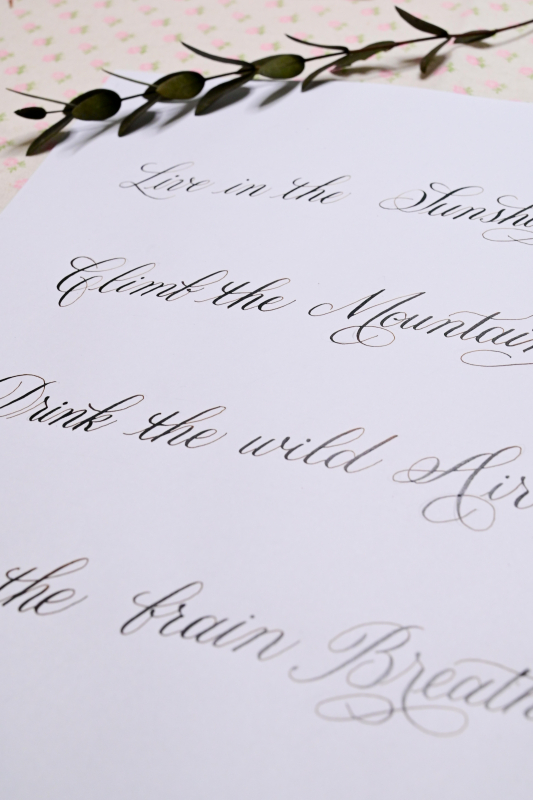 Live in the Sunsh
Climb the Mountain
Drink the wild Air
the frain Breath